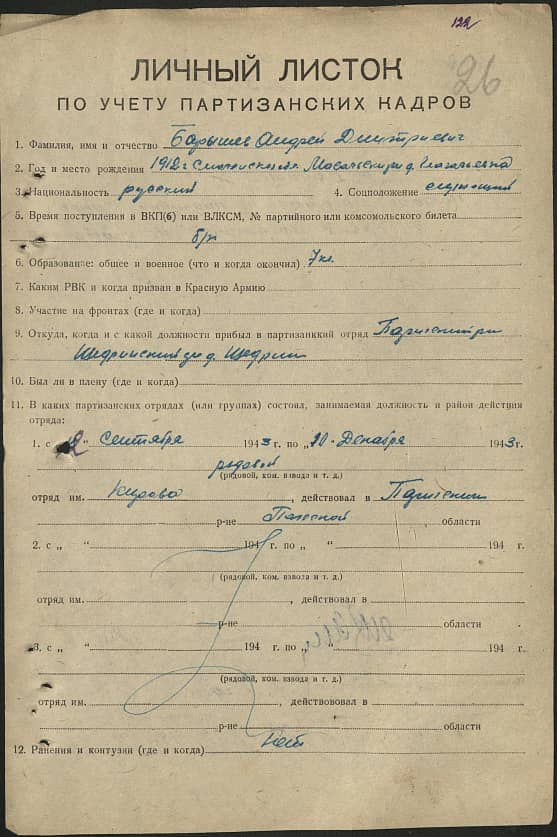 122
26
ЛИЧНЫЙ ЛИСТОК
ПО УЧЕТУ ПАРТИЗАНСКИХ КАДРОВ
1. Фамилия, имя и отчество Барышев Андрей Дмитриевич
2. Год и место рождения 1912 г Смоленской обл.
3. Национальность русский 4. Соцположение служащий
5. Время поступления в ВКП(б) или ВЛКСМ, № партийного или комсомольского билета
б/п
6. Образование: общее и военное (что и когда окончил) 7 кл.
7. Каким РВК и когда призван в Красную Армию
8. Участие на фронтах (где и когда)
9. Откуда, когда и с какой должности прибыл в партизанский отряд
Щедринский д. Щедрин
10. Был ли в плену (где и когда)
11. В каких партизанских отрядах (или группах) состоял, занимаемая должность и район действия
отряда:
1. с " Сентября 1943 г. по „20" Декабря 1943 г.
рядовой
(рядовой, ком. взвода и т. д.)
отряд им. Кирова, действовал в
р-не Полесской области
2. с „ “ 194 г. по „ “ 194 г.
(рядовой, ком. взвода и т. д.)
отряд им. , действовал в
р-не области
3. с „ “ 194 г. по „ “ 194 г.
(рядовой, ком. взвода и т. д.)
отряд им. , действововал в
р-не области
12. Ранения и контузки (где и когда) Нет